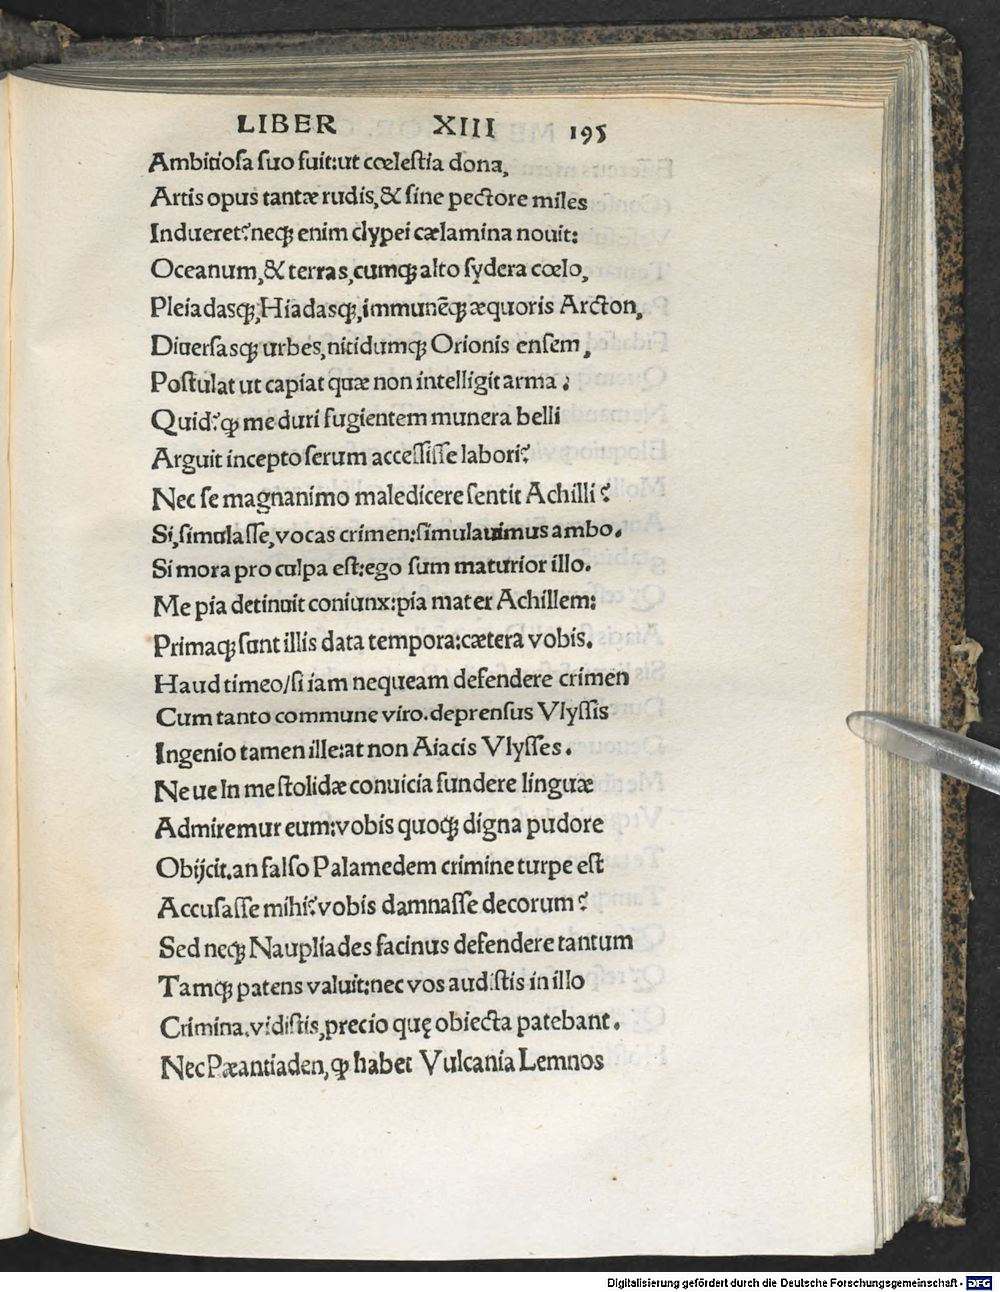 LIBER XIII 195
Ambitiosa suo fuit:ut cœlestia dona,
Artis opus tantæ rudis,& sine pectore miles
Indueret?neq; enim clypei cælamina nouit:
Oceanum,& terras,cumq; alto sydera cœlo,
Pleiadasq;,Hiadasq;,immunēq; æquoris Arcton,
Diuersasq; urbes,nitidumq; Orionis ensem,
Postulat ut capiat quæ non intelligit arma.
Quid?ꝙ me duri fugientem munera belli
Arguit incepto serum accessisse labori?
Nec se magnanimo maledicere sentit Achilli?
Si,simulasse,vocas crimen:simulauimus ambo.
Si mora pro culpa est:ego sum maturior illo.
Me pia detinuit coniunx:pia mater Achillem:
Primaq; sunt illis data tempora:cætera vobis.
Haud timeo/si iam nequeam defendere crimen
Cum tanto commune viro.deprensus Vlyssis
Ingenio tamen ille:at non Aiacis Vlysses.
Ne ue In me stolidæ conuicia fundere linguæ
Admiremur eum:vobis quoq; digna pudore
Obijcit.an falso Palamedem crimine turpe est
Accusasse mihi?vobis damnasse decorum?
Sed neq; Naupliades facinus defendere tantum
Tamq; patens valuit:nec vos audistis in illo
Crimina.vidistis,precio quę obiecta patebant.
Nec Pæantiaden,ꝙ habet Vulcania Lemnos
Digitalisierung gefördert durch die Deutsche Forschungsgemeinschaft - DFG